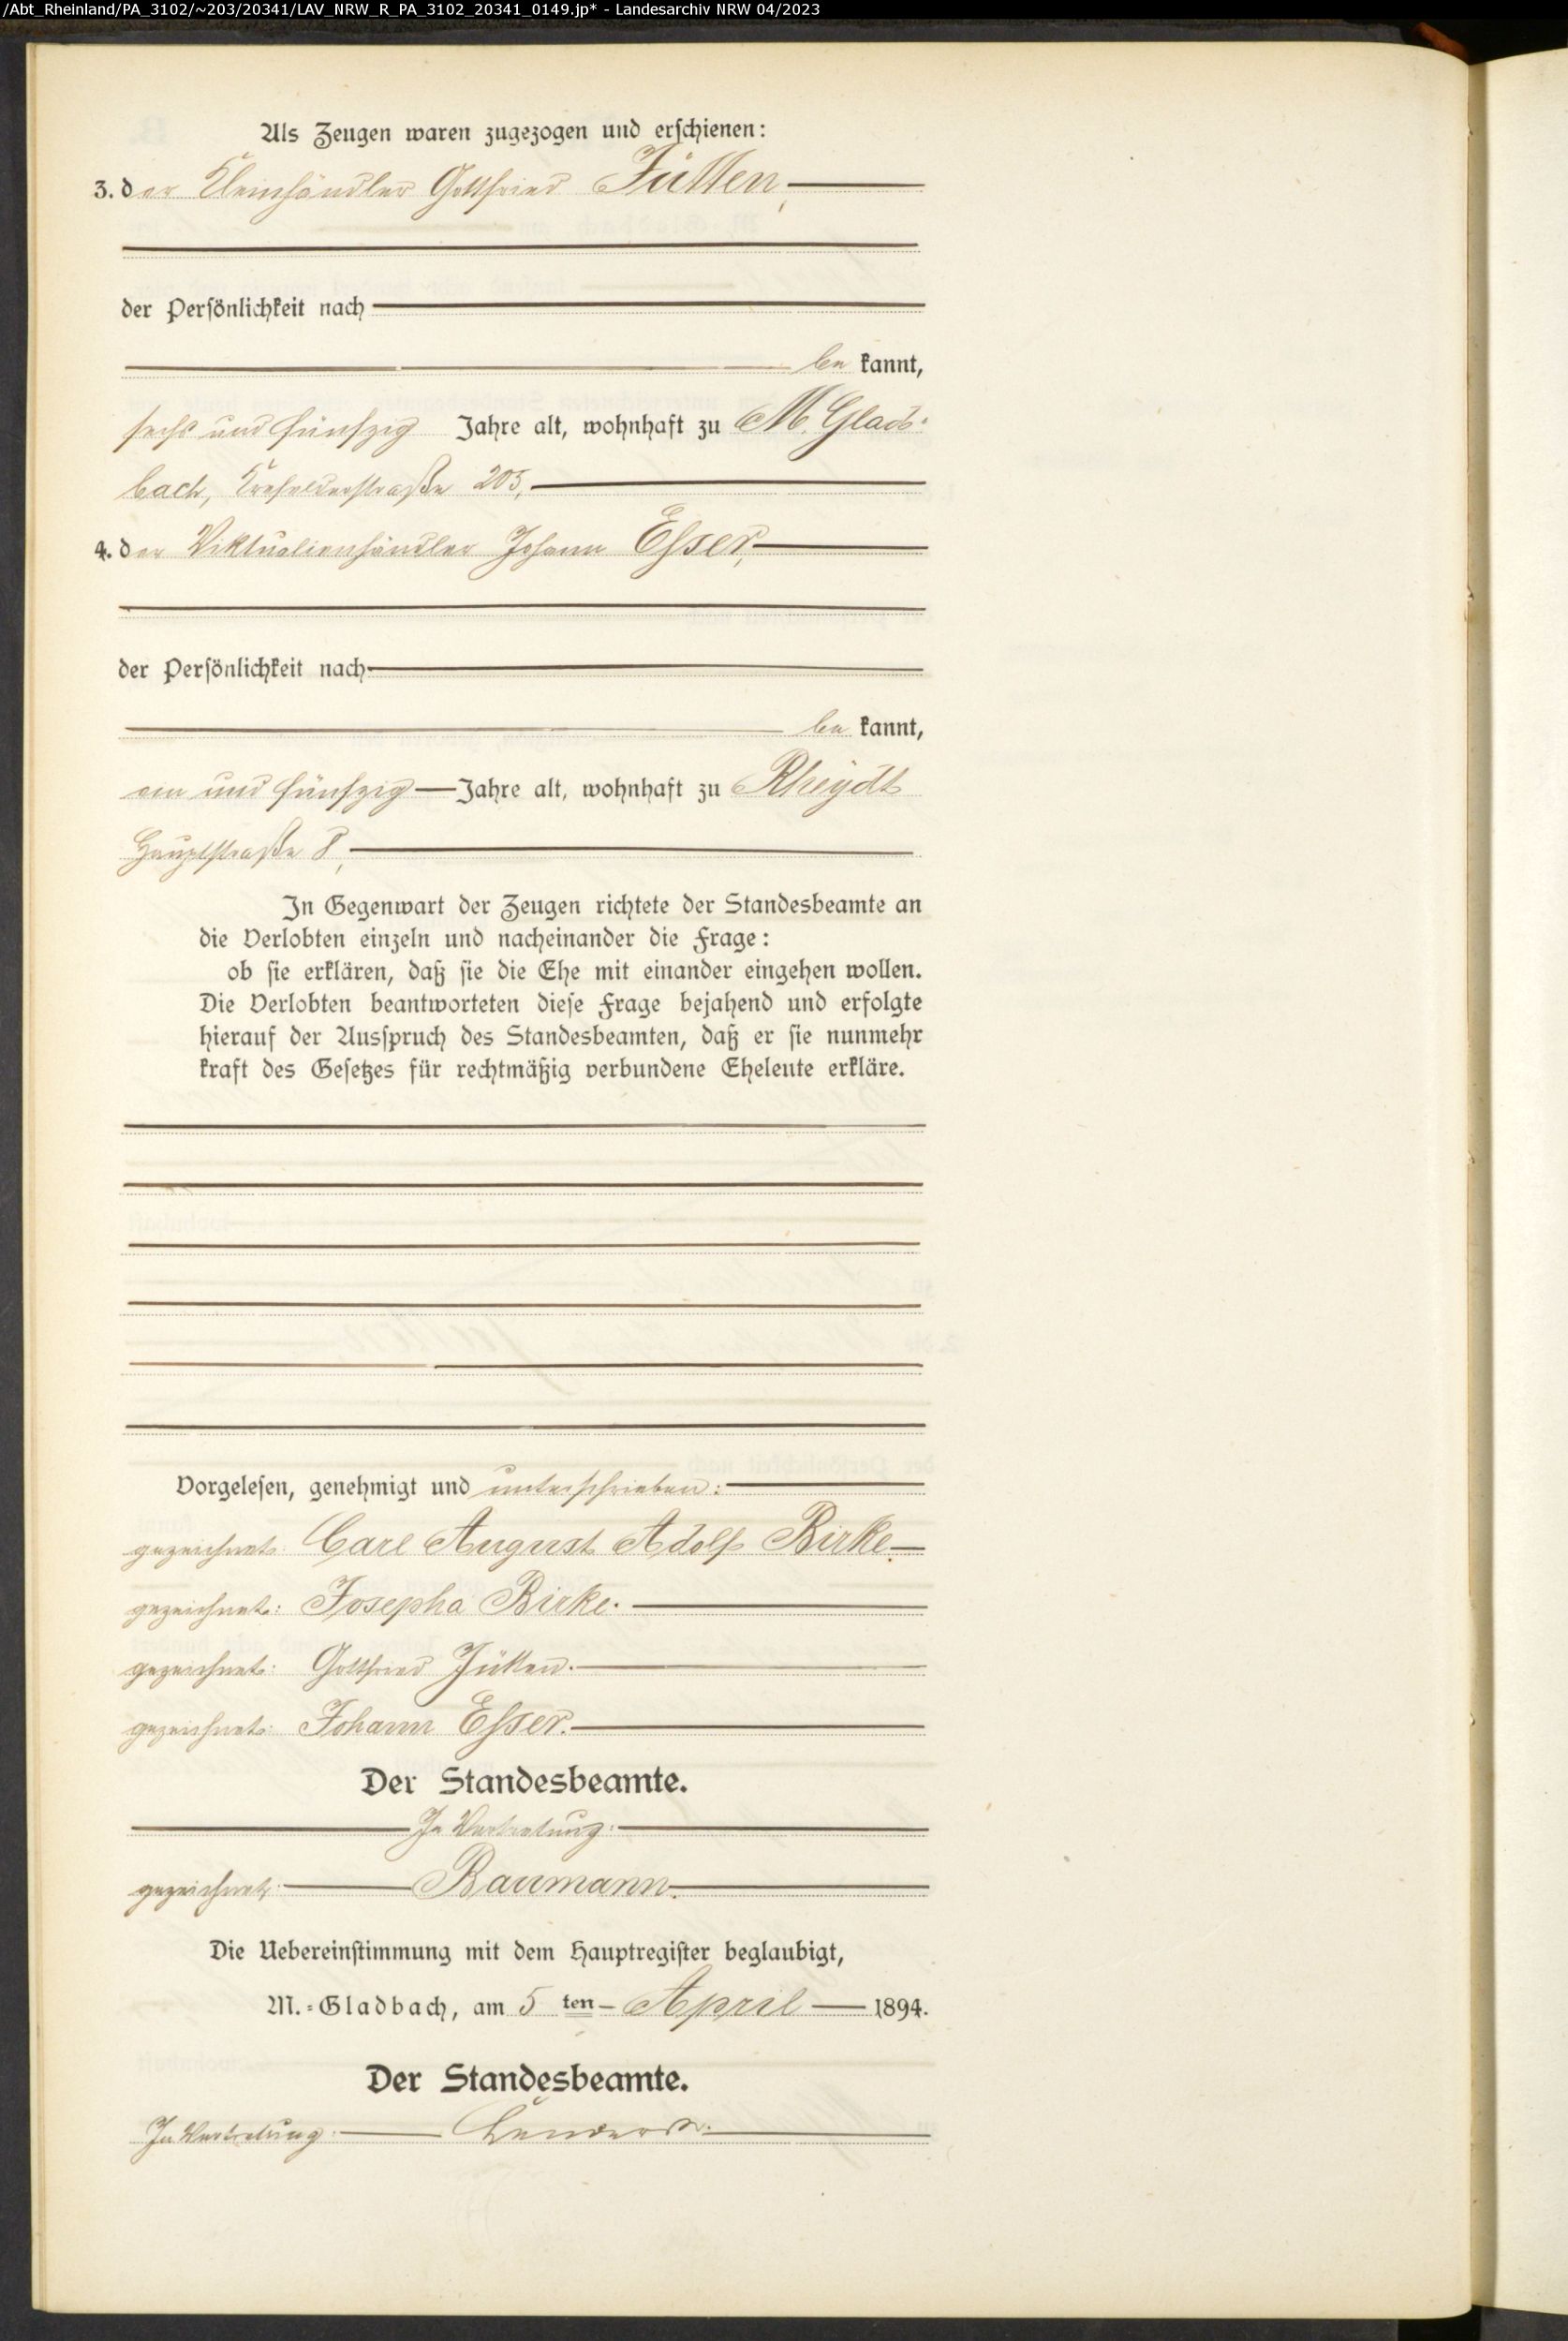 /Abt_Rheinland/PA_3102/~203/20341/LAV_NRW_R_PA_3102_20341_0149.jp* - Landesarchiv NRW 04/2023
Als Zeugen waren zugezogen und erschienen:
3. der Kleinhändler Gottfried Jütten,
der Persönlichkeit nach
be kannt,
sechs und fünfzig Jahre alt, wohnhaft zu M. Glad-
bach, Krefelderstraße 205,
4. der Viktualienhändler Johann Esser,
der Persönlichkeit nach
be kannt,
ein und fünfzig Jahre alt, wohnhaft zu Rheydt
Hauptstraße 8,
In Gegenwart der Zeugen richtete der Standesbeamte an
die Verlobten einzeln und nacheinander die Frage:
ob sie erklären, daß sie die Ehe mit einander eingehen wollen.
Die Verlobten beantworteten diese Frage bejahend und erfolgte
hierauf der Ausspruch des Standesbeamten, daß er sie nunmehr
kraft des Gesetzes für rechtmäßig verbundene Eheleute erkläre.
Vorgelesen, genehmigt und unterschrieben:
gezeichnet: Carl August Adolf Birke.
gezeichnet: Josepha Birke.
gezeichnet: Gottfried Jütten.
gezeichnet: Johann Esser.
Der Standesbeamte.
In Vertretung:
gezeichnet: Baumann.
Die Uebereinstimmung mit dem Hauptregister beglaubigt,
M.-Gladbach, am 5 ten April 1894.
Der Standesbeamte.
In Vertretung: